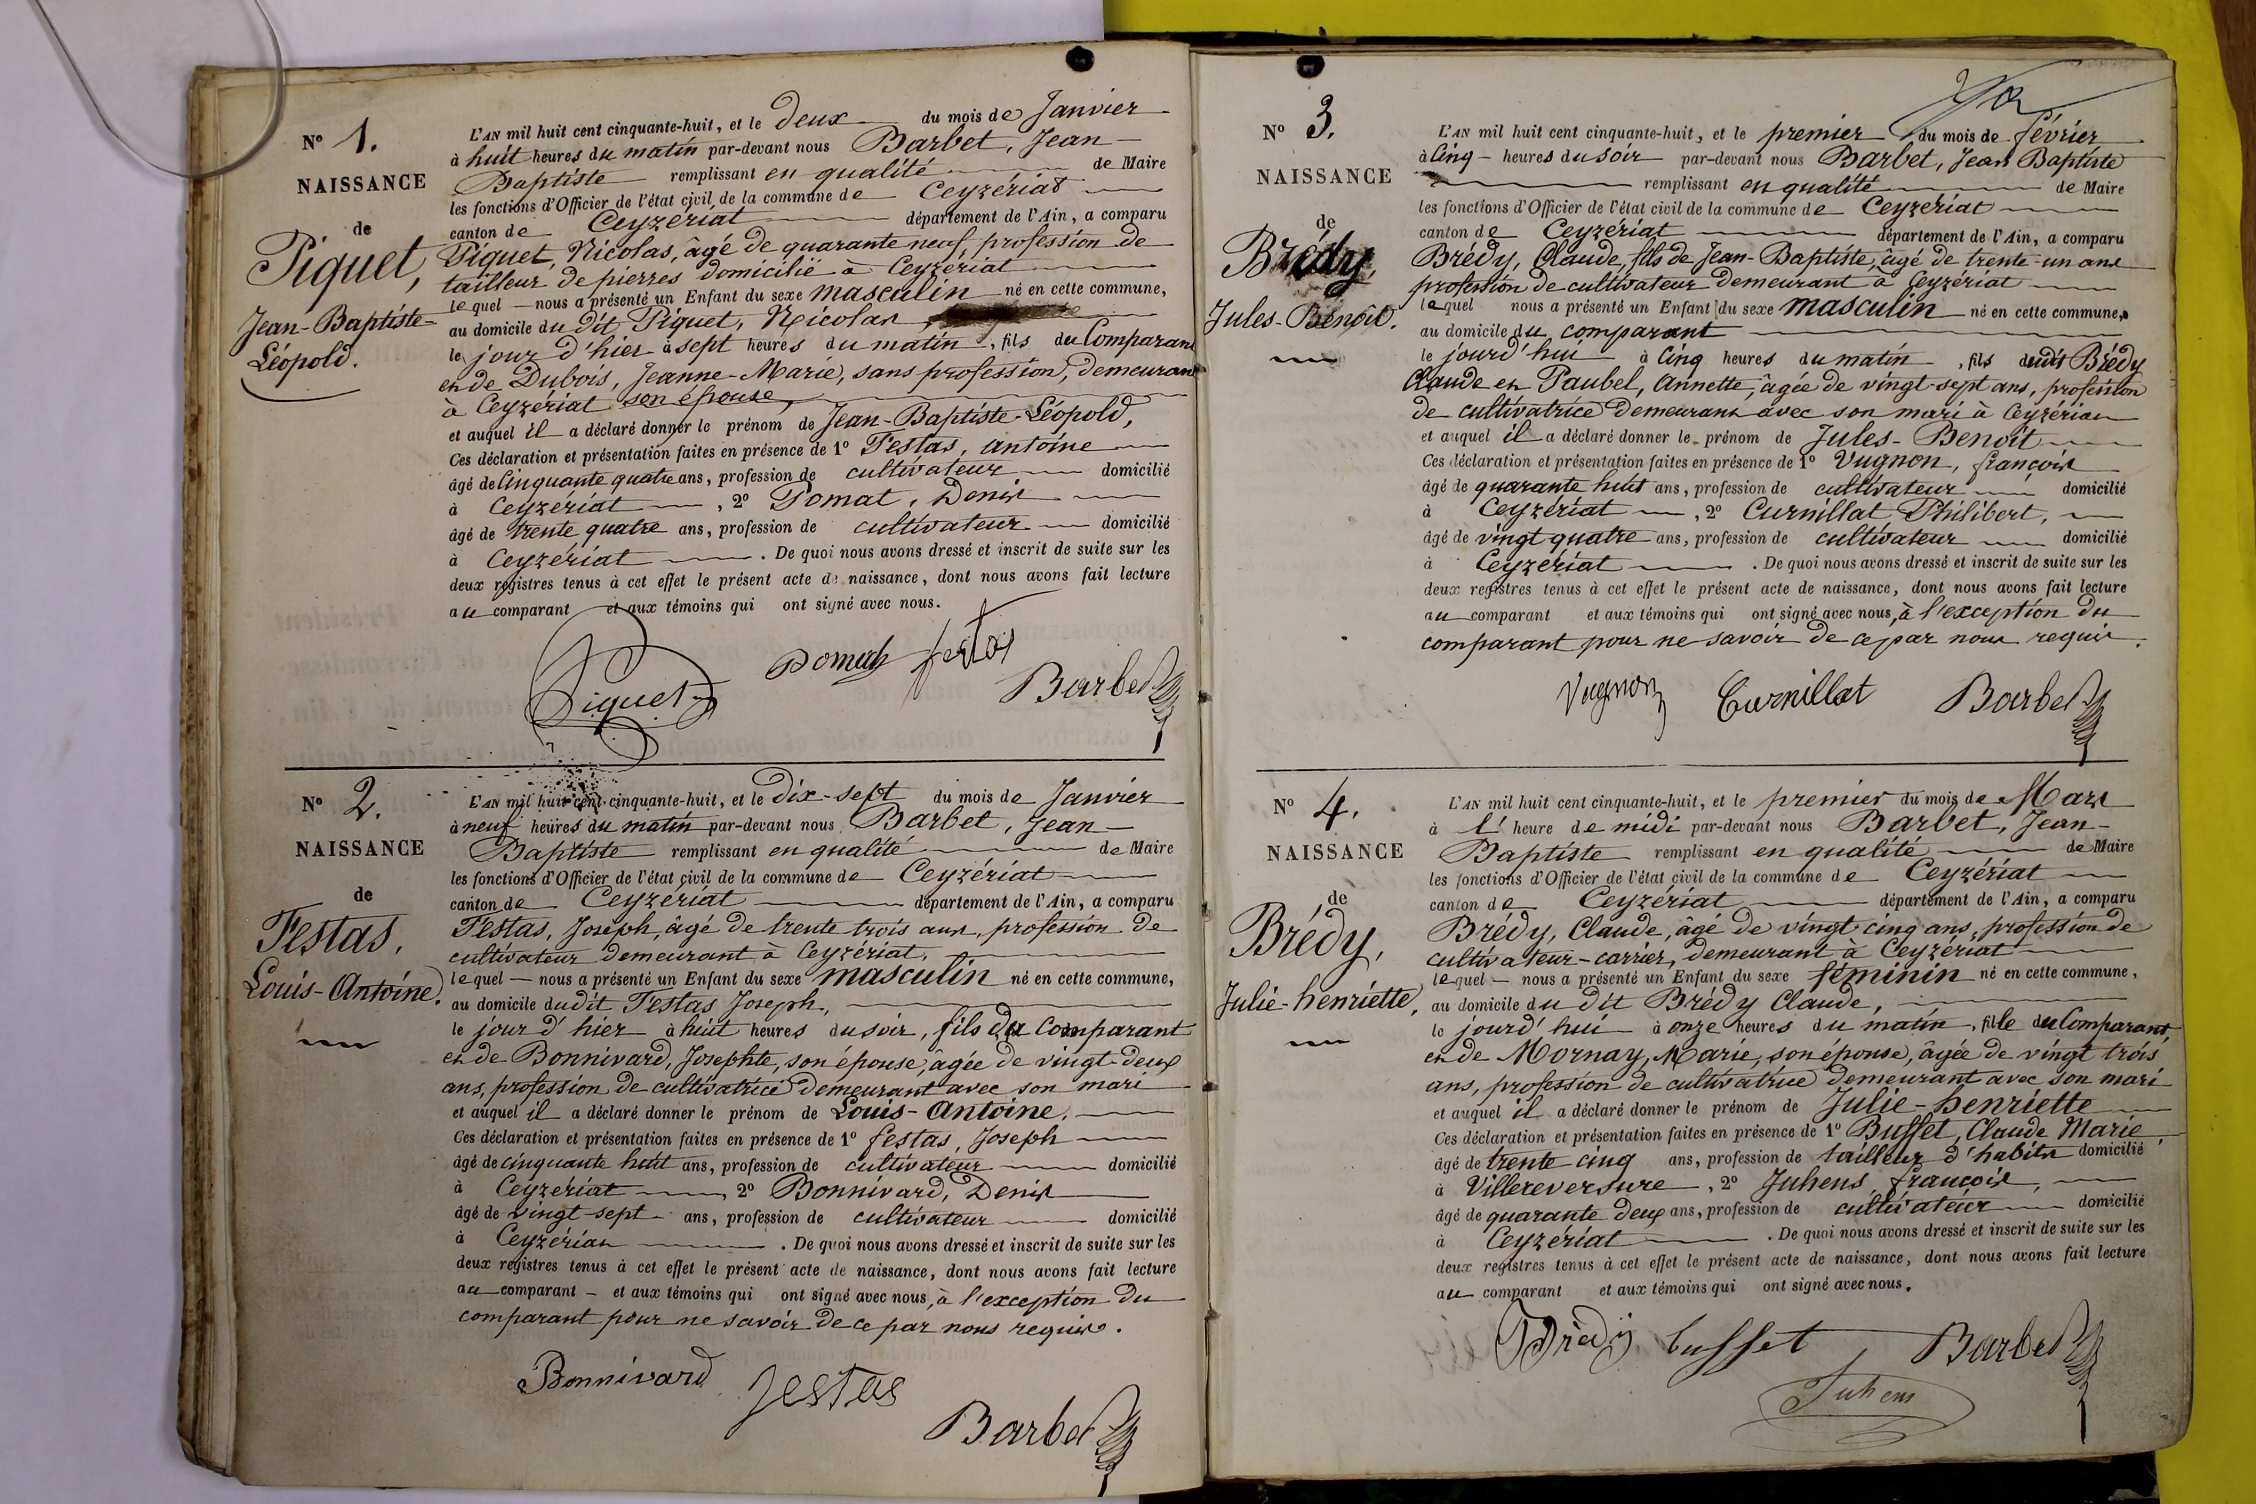 N° 1.
NAISSANCE
de
Piquet,
Jean-Baptiste-
Léopold.
L'AN mil huit cent cinquante-huit, et le deux du mois de Janvier
à huit heures du matin par-devant nous Barbet, Jean-
Baptiste remplissant en qualité de Maire
les fonctions d'Officier de l'état civil de la commune de Ceyzériat
canton de Ceyzériat département de l'Ain, a comparu
Piquet, Nicolas, âgé de quarante neuf, profession de
tailleur de pierres domicilié à Ceyzériat
lequel nous a présenté un Enfant du sexe masculin né en cette commune,
au domicile du dit Piquet, Nicolas
le jour d'hier à sept heures du matin, fils du Comparant
et de Dubois, Jeanne-Marie, sans profession, demeurant
à Ceyzériat son épouse,
et auquel il a déclaré donner le prénom de Jean-Baptiste-Léopold,
Ces déclaration et présentation faites en présence de 1° Festas, Antoine
âgé de Cinquante quatre ans, profession de cultivateur domicilié
à Ceyzériat, 2° Pomat, Denis
âgé de trente quatre ans, profession de cultivateur domicilié
à Ceyzériat. De quoi nous avons dressé et inscrit de suite sur les
deux registres tenus à cet effet le présent acte de naissance, dont nous avons fait lecture
au comparant et aux témoins qui ont signé avec nous.
Piquet Pomat festas Barbet
N° 2.
NAISSANCE
de
Festas,
Louis-Antoine.
L'AN mil huit cent cinquante-huit, et le dix-sept du mois de Janvier
à neuf heures du matin par-devant nous Barbet, Jean-
Baptiste remplissant en qualité de Maire
les fonctions d'Officier de l'état civil de la commune de Ceyzériat
canton de Ceyzériat département de l'Ain, a comparu
Festas, Joseph, âgé de trente trois ans, profession de
cultivateur demeurant à Ceyzériat,
lequel nous a présenté un Enfant du sexe masculin né en cette commune,
au domicile dudit Festas Joseph,
le jour d'hier à huit heures du soir, fils du Comparant
et de Bonnivard, Josephte, son épouse, âgée de vingt-deux
ans, profession de cultivatrice demeurant avec son mari
et auquel il a déclaré donner le prénom de Louis-Antoine,
Ces déclaration et présentation faites en présence de 1° festas, Joseph
âgé de cinquante huit ans, profession de cultivateur domicilié
à Ceyzériat, 2° Bonnivard, Denis
âgé de vingt-sept ans, profession de cultivateur domicilié
à Ceyzériat. De quoi nous avons dressé et inscrit de suite sur les
deux registres tenus à cet effet le présent acte de naissance, dont nous avons fait lecture
au comparant et aux témoins qui ont signé avec nous, à l'exception du
comparant pour ne savoir de ce par nous requis.
Bonnivard festas
Barbet
N° 3.
NAISSANCE
de
Brédy,
Jules-Benoît.
L'AN mil huit cent cinquante-huit, et le premier du mois de février
à Cinq heures du soir par-devant nous Barbet, Jean Baptiste
remplissant en qualité de Maire
les fonctions d'Officier de l'état civil de la commune de Ceyzériat
canton de Ceyzériat département de l'Ain, a comparu
Brédy, Claude, fils de Jean-Baptiste, âgé de trente-un ans
profession de cultivateur demeurant à Ceyzériat
lequel nous a présenté un Enfant du sexe masculin né en cette commune,
au domicile du comparant
le jourd'hui à Cinq heures du matin, fils dudit Brédy
Claude et Paubel, Annette, âgée de vingt-sept ans, profession
de cultivatrice demeurant avec son mari à Ceyzériat
et auquel il a déclaré donner le prénom de Jules-Benoît
Ces déclaration et présentation faites en présence de 1° Vugnon, françois
âgé de quarante huit ans, profession de cultivateur domicilié
à Ceyzériat, 2° Curnillat, Philibert,
âgé de vingt quatre ans, profession de cultivateur domicilié
à Ceyzériat. De quoi nous avons dressé et inscrit de suite sur les
deux registres tenus à cet effet le présent acte de naissance, dont nous avons fait lecture
au comparant et aux témoins qui ont signé avec nous, à l'exception du
comparant pour ne savoir de ce par nous requis.
Vugnon Curnillat Barbet
N° 4.
NAISSANCE
de
Brédy,
Julie-henriette,
L'AN mil huit cent cinquante-huit, et le premier du mois de Mars
à l' heure de midi par-devant nous Barbet, Jean-
Baptiste remplissant en qualité de Maire
les fonctions d'Officier de l'état civil de la commune de Ceyzériat
canton de Ceyzériat département de l'Ain, a comparu
Brédy, Claude, âgé de vingt-cinq ans, profession de
cultivateur-carrier, demeurant à Ceyzériat
lequel nous a présenté un Enfant du sexe féminin né en cette commune,
au domicile du dit Brédy Claude,
le jourd'hui à onze heures du matin, fille du Comparant
et de Mornay, Marie, son épouse, âgée de vingt trois
ans, profession de cultivatrice demeurant avec son mari
et auquel il a déclaré donner le prénom de Julie-henriette
Ces déclaration et présentation faites en présence de 1° Buffet, Claude Marie
âgé de trente cinq ans, profession de tailleur d'habits domicilié
à Villereversure, 2° Juhens, françois,
âgé de quarante deux ans, profession de cultivateur domicilié
à Ceyzériat. De quoi nous avons dressé et inscrit de suite sur les
deux registres tenus à cet effet le présent acte de naissance, dont nous avons fait lecture
au comparant et aux témoins qui ont signé avec nous.
Brédy buffet Barbet
Juhens